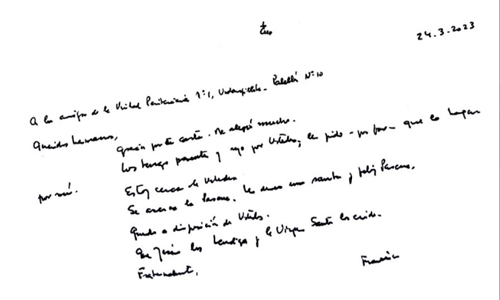 24.3.2023
A los amigos de la Unidad Penitenciaria Nº 1, Pabellón Nº 10
Queridos hermanos,
gracias por la carta. Me alegró mucho.
Los tengo presente y rezo por Ustedes, les pido - por favor - que lo hagan
por mí.
Estoy cerca de Ustedes
Se acerca la Pascua. Les deseo una santa y feliz Pascua.
Quedo a disposición de Ustedes.
Que Jesús los bendiga y la Virgen Santa los cuide.
Fraternalmente,
Francisco